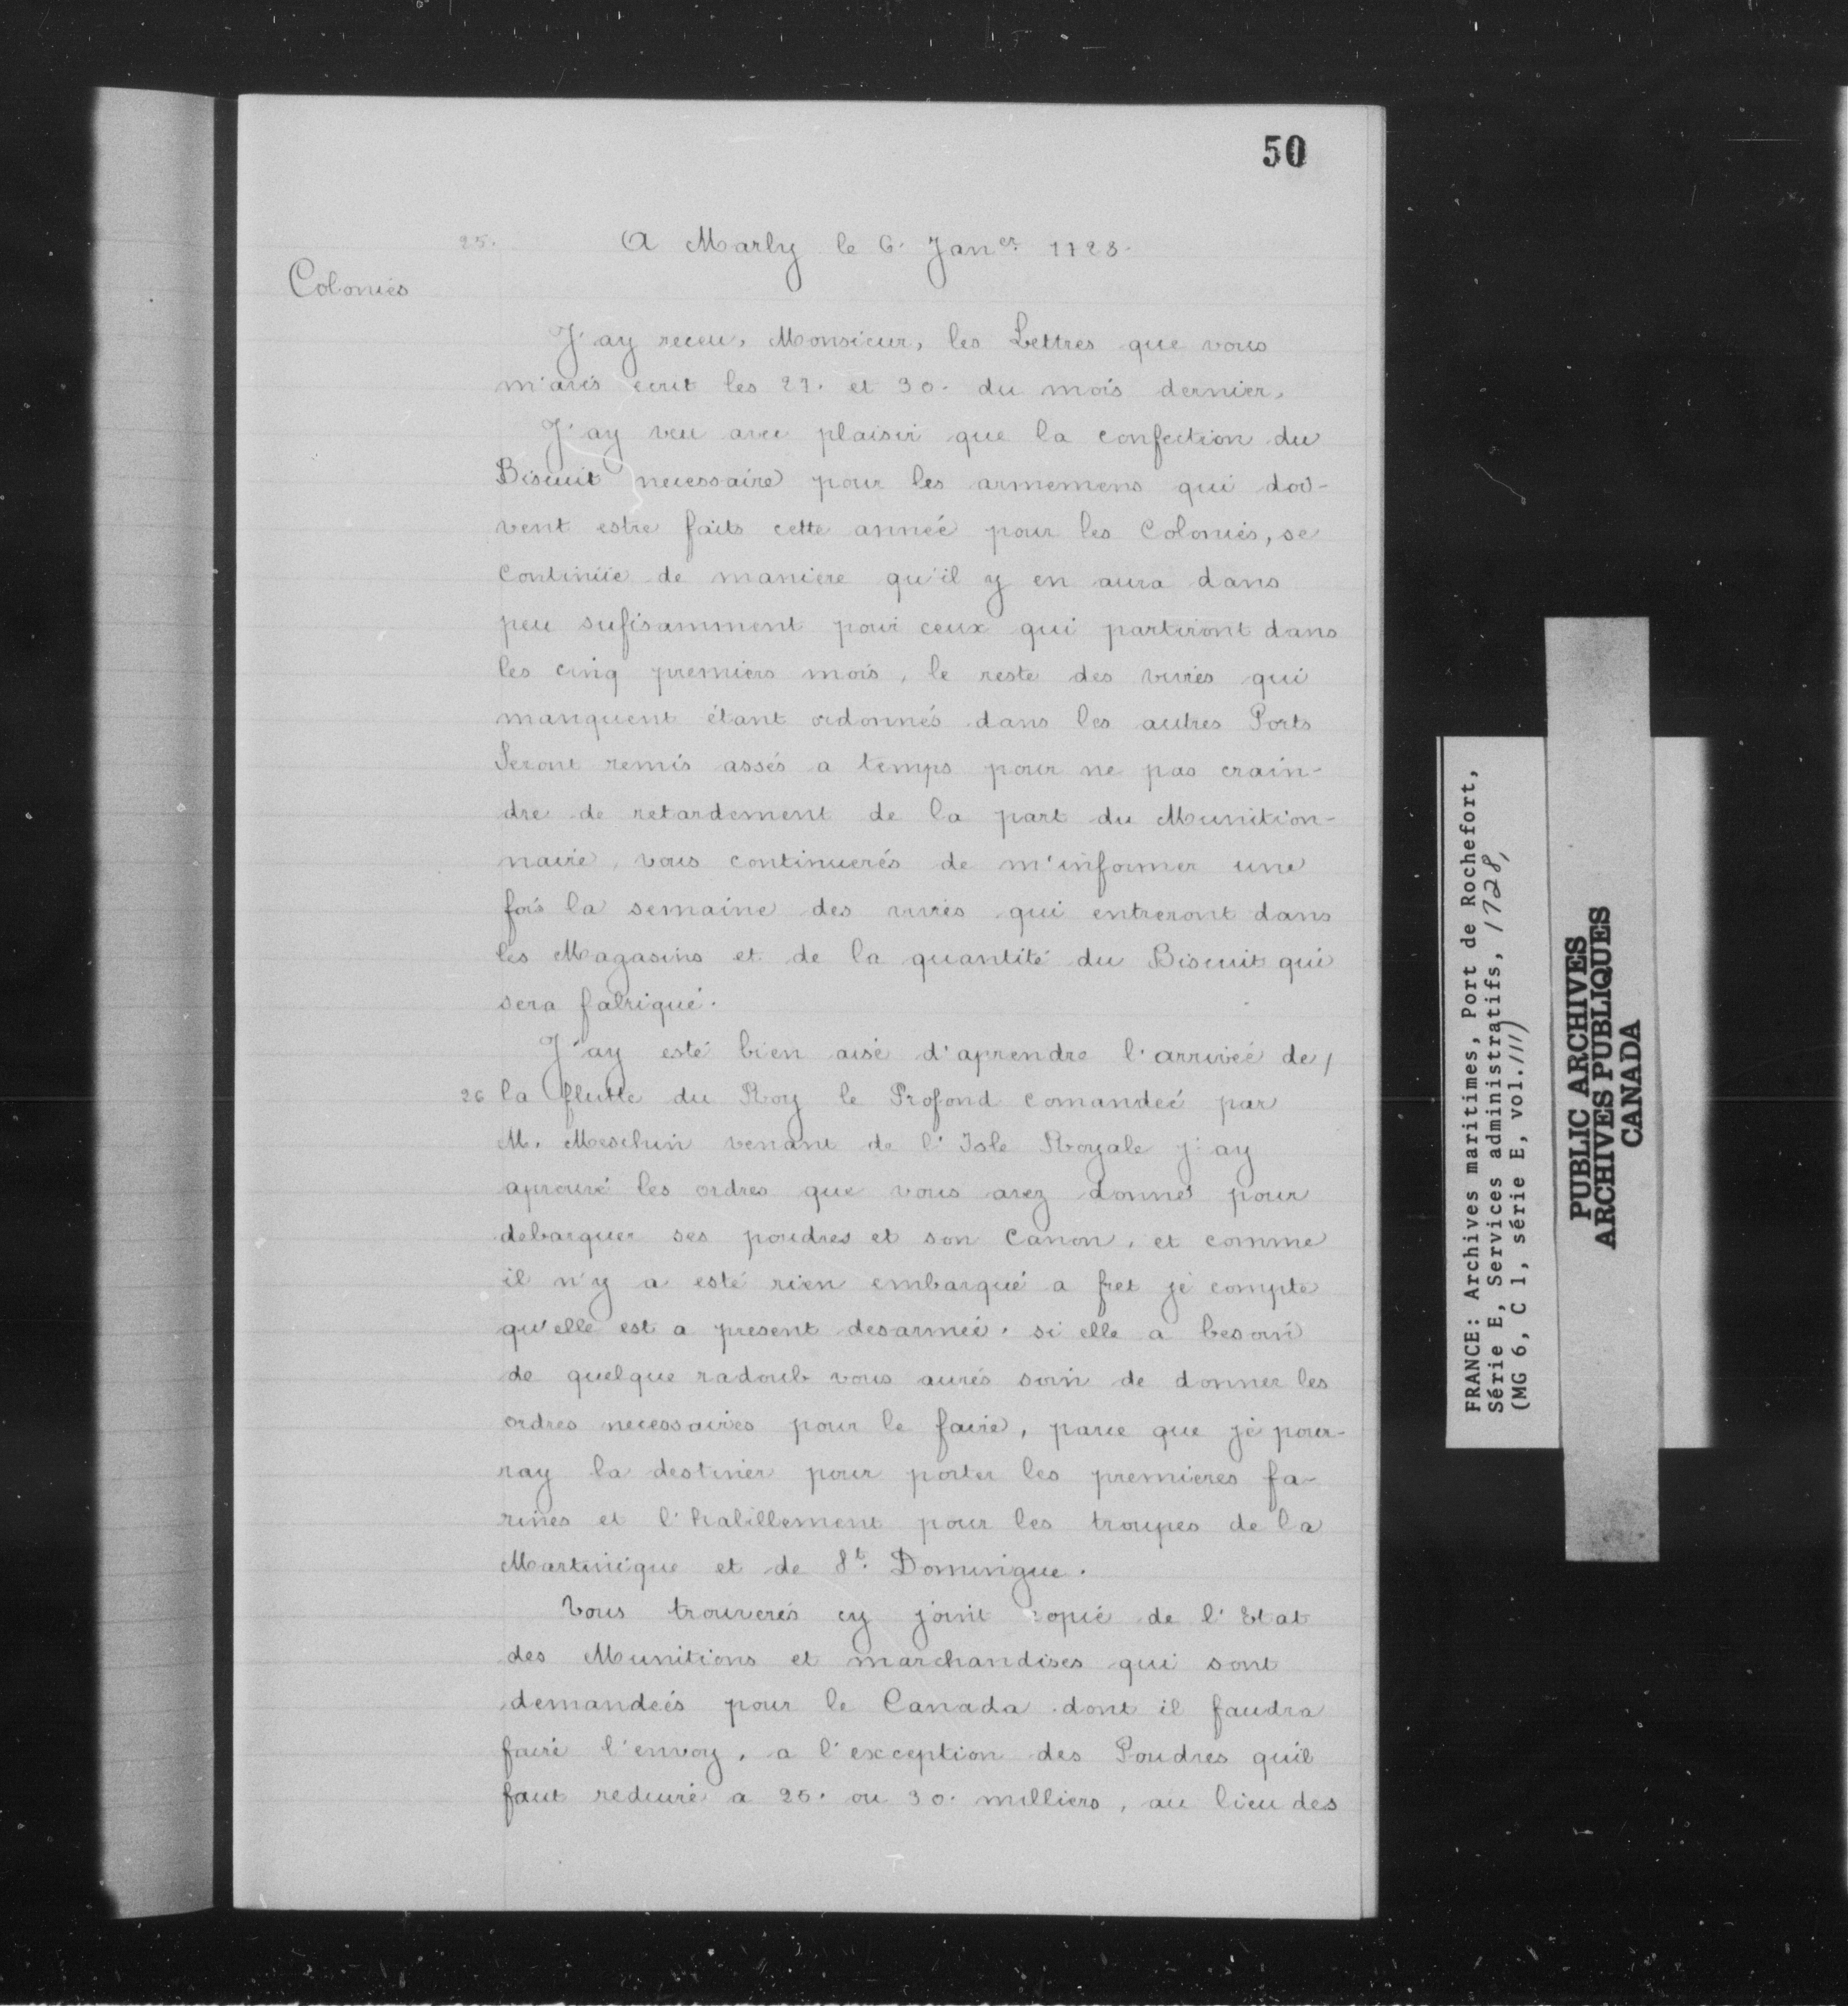 50
25.
A Marly le 6. Jan.er 1728.
Colonies
J'ay receu, Monsieur, les Lettres que vous
m'avés ecrit les 27. et 30. du mois dernier,
J'ay veu avec plaisir que la confection du
Biscuit necessaire pour les armemens qui doi-
vent estre faits cette année pour les Colonies, se
continüe de maniere qu'il y en aura dans
peu sufisamment pour ceux qui partiront dans
les cinq premiers mois, le reste des vivres qui
manquent étant ordonnés dans les autres Ports
Seront remis assés a temps pour ne pas crain-
dre de retardement de la part du Munition-
naire, vous continuerés de m'informer une
fois la semaine des vivres qui entreront dans
les Magasins et de la quantité du Biscuit qui
sera fabriqué.
J'ay esté bien aise d'aprendre l'arrivée de/
26 la flutte du Roy le Profond comandée par
M. Meschin venant de l'Isle Royale j'ay
aprouvé les ordres que vous avez donné pour
debarquer ses poudres et son canon, et comme
il n'y a esté rien embarqué a fret je compte
qu'elle est a present desarmée. si elle a besoin
de quelque radoub vous aurés soin de donner les
ordres necessaires pour le faire, parce que je pour-
ray la destiner pour porter les premieres fa-
rines et l'habillement pour les troupes de la
Martinique et de St. Domingue.
Vous trouverés cy joint copie de l'Etat
des Munitions et marchandises qui sont
demandées pour le Canada dont il faudra
faire l'envoy, a l'exception des Poudres quil
faut reduire a 25. ou 30. milliers, au lieu des
FRANCE: Archives maritimes, Port de Rochefort,
Série E, Services administratifs, 1728,
(MG 6, C 1, série E, vol.111)
PUBLIC ARCHIVES
ARCHIVES PUBLIQUES
CANADA